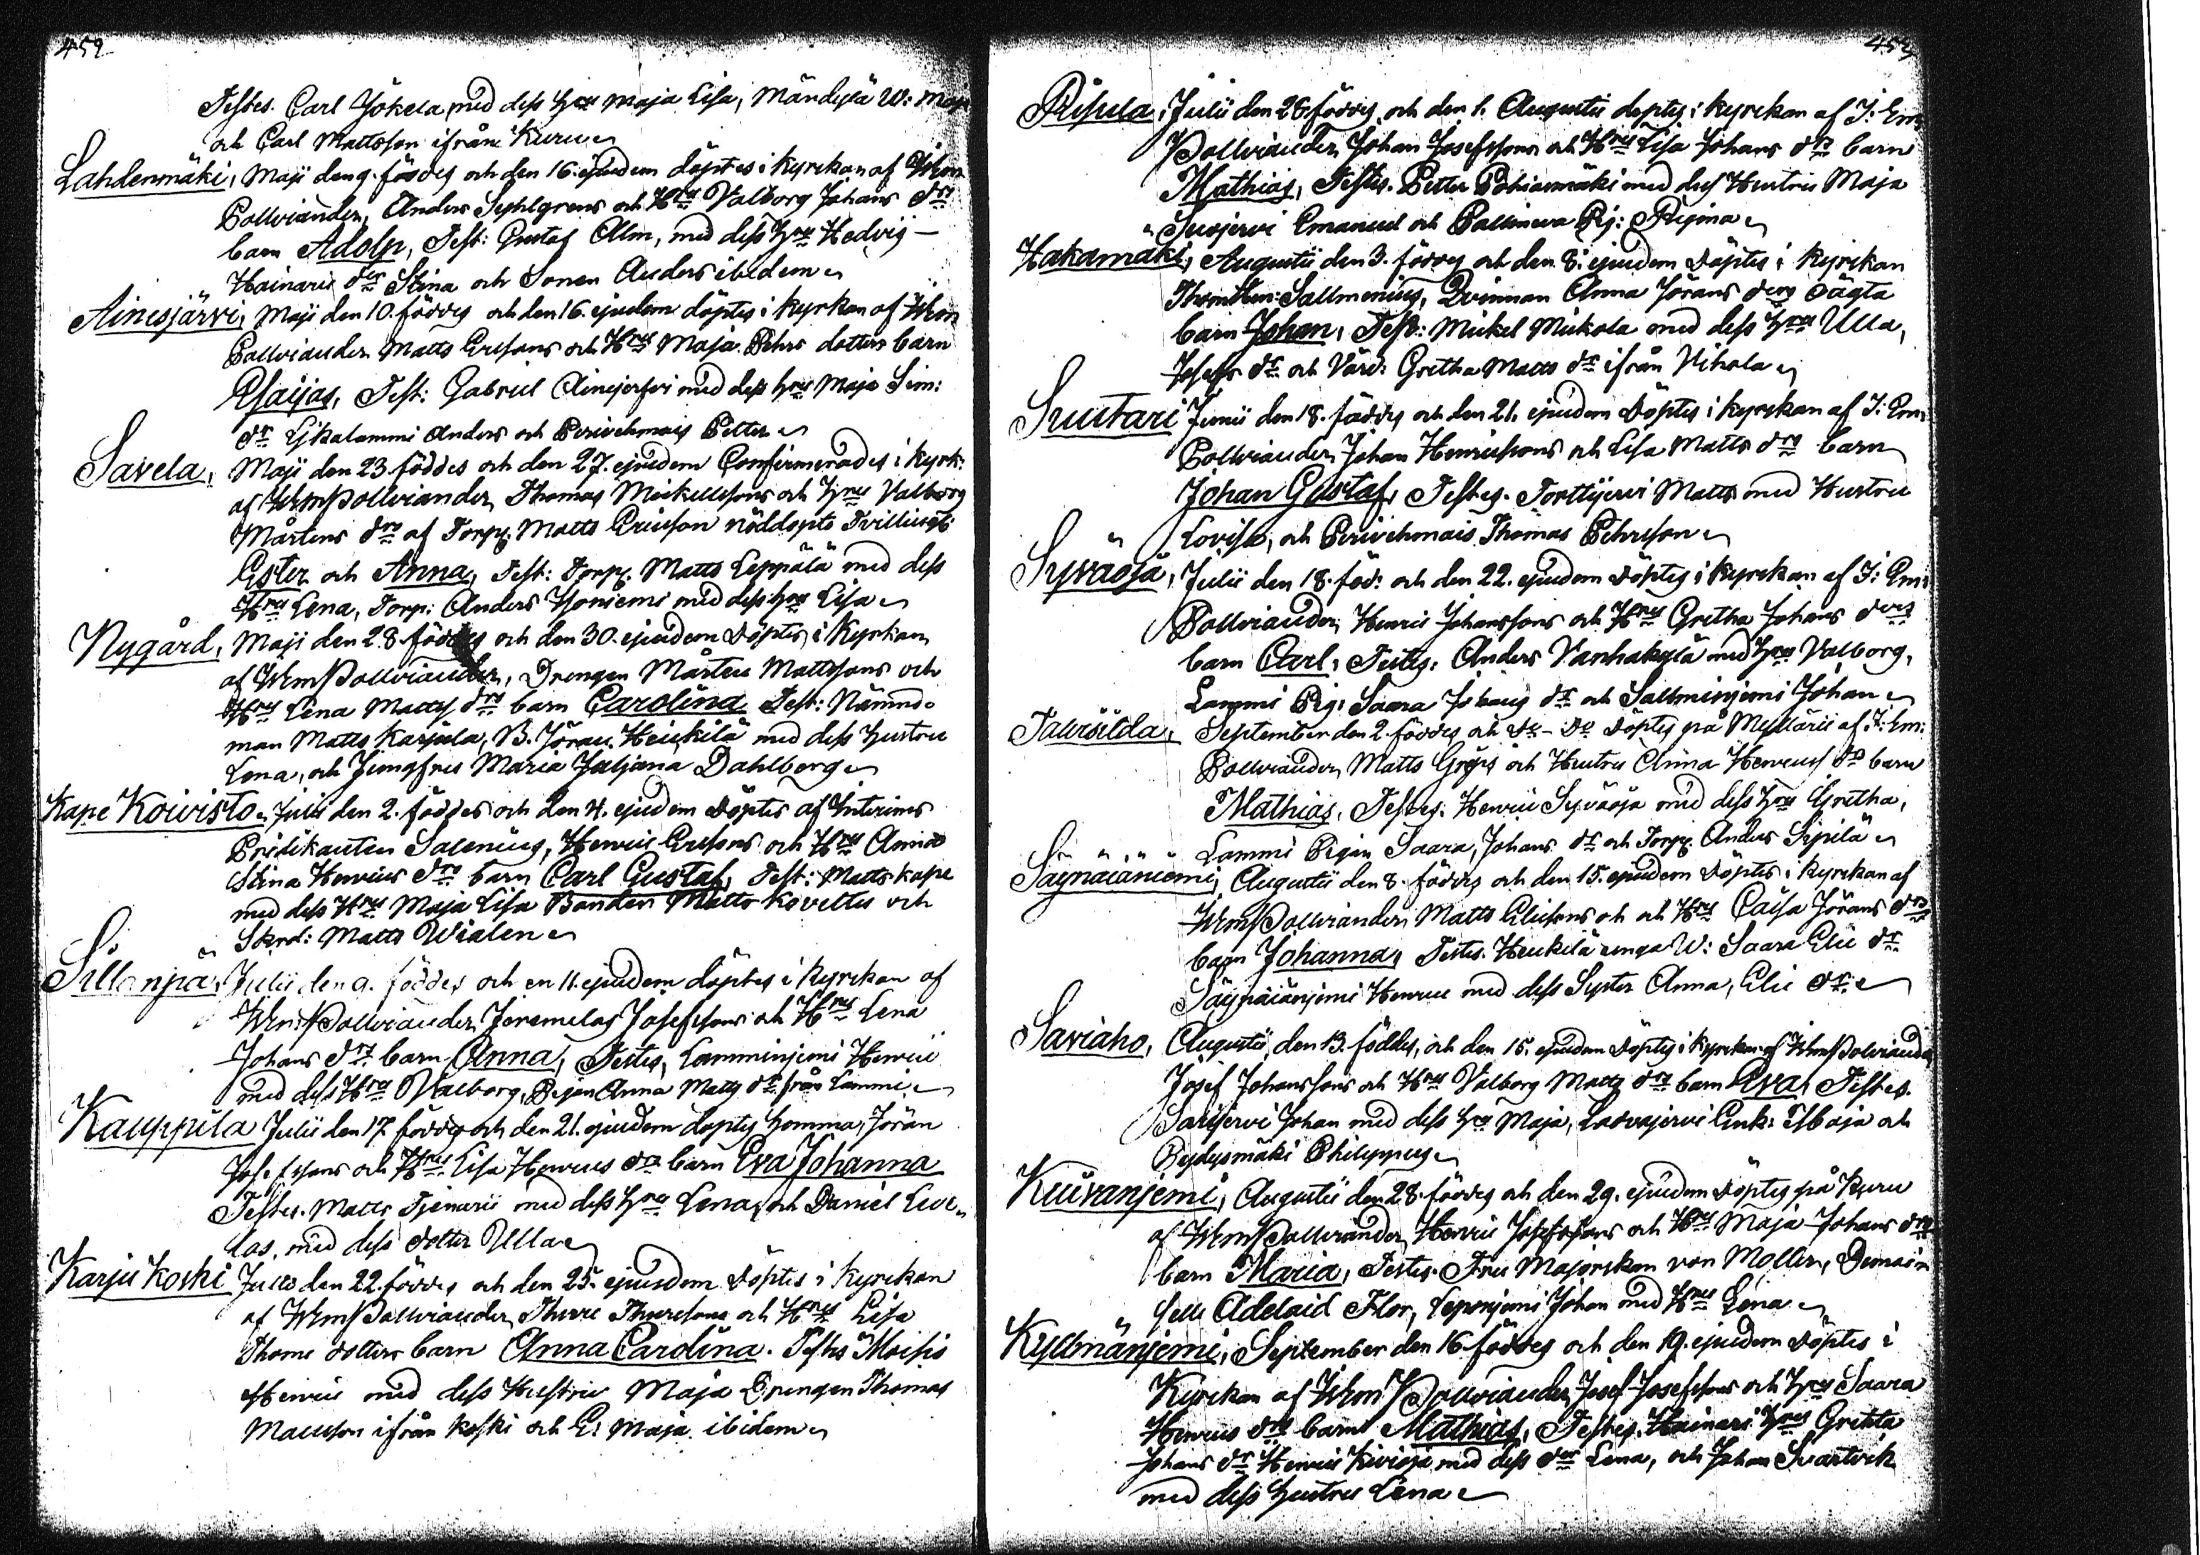 452
Testes. Carl Jökela, med dess hru Maja Lisa, Mändylä W: Maja
och Carl Mattsson ifrån Kuru
Lahdenmäki, Maji den 9. föddes och den 16. ejusdem döptes i Kyrckan af
Pollviander, Anders Syhlgrens och Hru Valborg Johans drs
barn Adolp, Test: Gustaf Alm, med dess hru Hedvig
Hainarie dr Stina och Sonen Anders ibidem
Ainesjärvi, Maji den 10. föddes och den 16. ejusdem döptes i kyrkan af Whm
Pollviander Matts Ersons och Hru Maja Pehrs dotters barn
Esaijas, Test: Gabriel Ainesjerfvi med dess hru Maja Sim:
dr Likalammi Anders och Perivehmais Petter
Savela, Maji den 23 föddes och den 27. ejusdem Confirmerades i Kyrk:
af Whm Pollviander Thomas Mickellsons och hrus Valborg
Mårtens drs af Torp: Matts Ericsson nöddöpte Tvillingb:
Ester och Anna, Test: Torp: Matts Leppälä med dess
Hru Lena, Torp: Anders Yoniemi med dess hru Lisa
Nygård, Maji den 28 föddes och den 30. ejusdem Döptes i Kyrkan
af Whm Pollviander, Drengen Mårten Mattssons och
Hrus Lena Matts drs barn Carolina Test: Nämnd-
man Matts Karjula, B. Jöran Heickilä med dess hustru
Lena, och Jungfru Maria Juljana Dahlberg
Kape Koivisto, Julii den 2. föddes och den 4. ejusdem Döptes af Interims
Predikanten Salenius, Henric Ersons och Hrus Anna
Stina Henrics drs barn Carl Gustaf, Test: Matts Kape
med dess Hru Maja Lisa Bonden Matts Koveltus och
Skrd: Matts Wialen
Sillanpä, Julii den 9. föddes och en 11. ejusdem döptes i Kyrckan af
Whm Pollviander Jeremias Josefssons och Hrus Lena
Johans drs barn Anna, Testes, Lamminjemi Henric
med dess Hru Valborg, Pigan Anna Matts dr från Lammi
Kauppila Julii den 17. föddes och den 21. ejusdem döptes hemma, Jöran
Josefssons och Hrus Lisa Henrics drs barn Eva Johanna
Testes. Matts Tjenarii med dess hru Lena, och Daniel
las, med dess dotter Ulla
Karju Koski Julii den 22. föddes och den 25. ejusdem Döptes i Kyrckan
af Whm Pollviander, Thure Thuresons och Hrus Lisa
Thome dotters barn Anna Carolina. Testes Moisio
Henric med dess Hustru Maja Drengen Thomas
Mattsson ifrån Koski och E: Maja ibidem
453
Rihula, Julii den 28 föddes, och den 1. Augustii döptes i kyrckan af I: Em:
Pollviander Johan Josefssons och Hrus Lisa Johans drs barn
Mathias, Testes. Petter Pohiasmäki med dess Hustru Maja
Susijervi Emanuel och Pig: Regina
Hakamäki, Augustii den 3. föddes och den 8. ejusdem Döptes i Kyrckan
Sallmenius, Qvinnan Anna Jörans drs oägta
barn Johan, Test: Mickel Mickola med dess hru Ulla,
Josefs dr och Värd: Gretha Matts dr ifrån
Suutari Junii den 18. föddes och den 21. ejusdem Döptes i kyrckan af I: Em:
Pollviander, Johan Henricssons och Lisa Matts drs barn
Johan Gustaf, Testes. Torttijervi Matts med Hustru
Lovisa, och Perivehmais Thomas Pehrsson
Syväoja, Julii den 18. föd: och den 22. ejusdem Döptes i Kyrckan af I: Em:
Pollviander, Henric Johanssons och Hrus Gretha Johans drs
barn Carl, Testes: Anders Vanhakylä med hru Valborg,
Lammi Pig: Saara Johans dr och Sallminjemi Johan
September den 2. föddes och Dr - Do Döptes på Myllärii af I: Em:
Pollviander Matts och Hustru Anna Henrics drs barn
Mathias. Testes. Henric Syväoja med dess hru Gretha,
Lammi Pigan Saara, Johans dr och Torp: Anders Sipilä
Säynäiäniemi, Augustii den 8. föddes och den 15. ejusdem Döptes i kyrckan af
Whm Pollviander, Matts Eliesons och Caisa Jörans drs
barn Johanna, Testes. Heickilä unga W: Saara Elie dr
Säynäiänjemi Henric med dess Syster Anna, Elie dr
Saviaho, Augustii, den 13. föddes, och den 15. ejusdem Döptes i Kyrckan af Whm Pollviander
Josef Johanssons och Hrus Valborg Matts drs barn Eva, Testes.
Sarijervi Johan med dess hru Maja, Ladvajervi Enk: Maja och
Philippus
Kuivanjemi, Augustii den 28. föddes och den 29. ejusdem Döptes på Kuru
af Whm Pollviander, Henric Josefssons och Hrus Maja Johans drs
barn Maria, Testes. Fru Majorskan von Moller, Demoi-
selle Adelaid Flor, Leponjemi Johan med Hru Lena
Kyllmänjemi, September den 16 föddes och den 19. ejusdem Döptes i
Kyrckan af Whm Pollviander, Josef Josefssons och hrus Saara
Henrics drs barn Mathias, Testes. Hainari hru Gretta
Johans dr Henric Kivioja med dess dr Lena, och Johan Svartvick
med dess hustru Lena